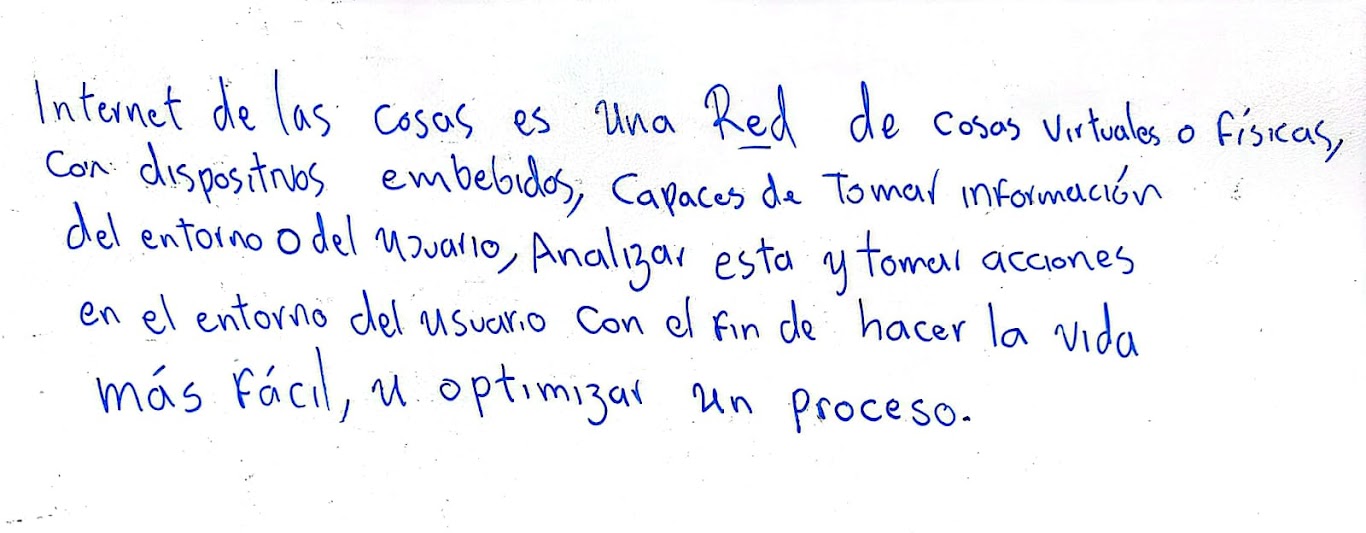 Internet de las cosas es una Red de cosas virtuales o físicas,
con dispositivos embebidos, capaces de Tomar información
del entorno o del usuario, Analizar esta y tomar acciones
en el entorno del usuario con el fin de hacer la vida
más fácil, u optimizar un proceso.